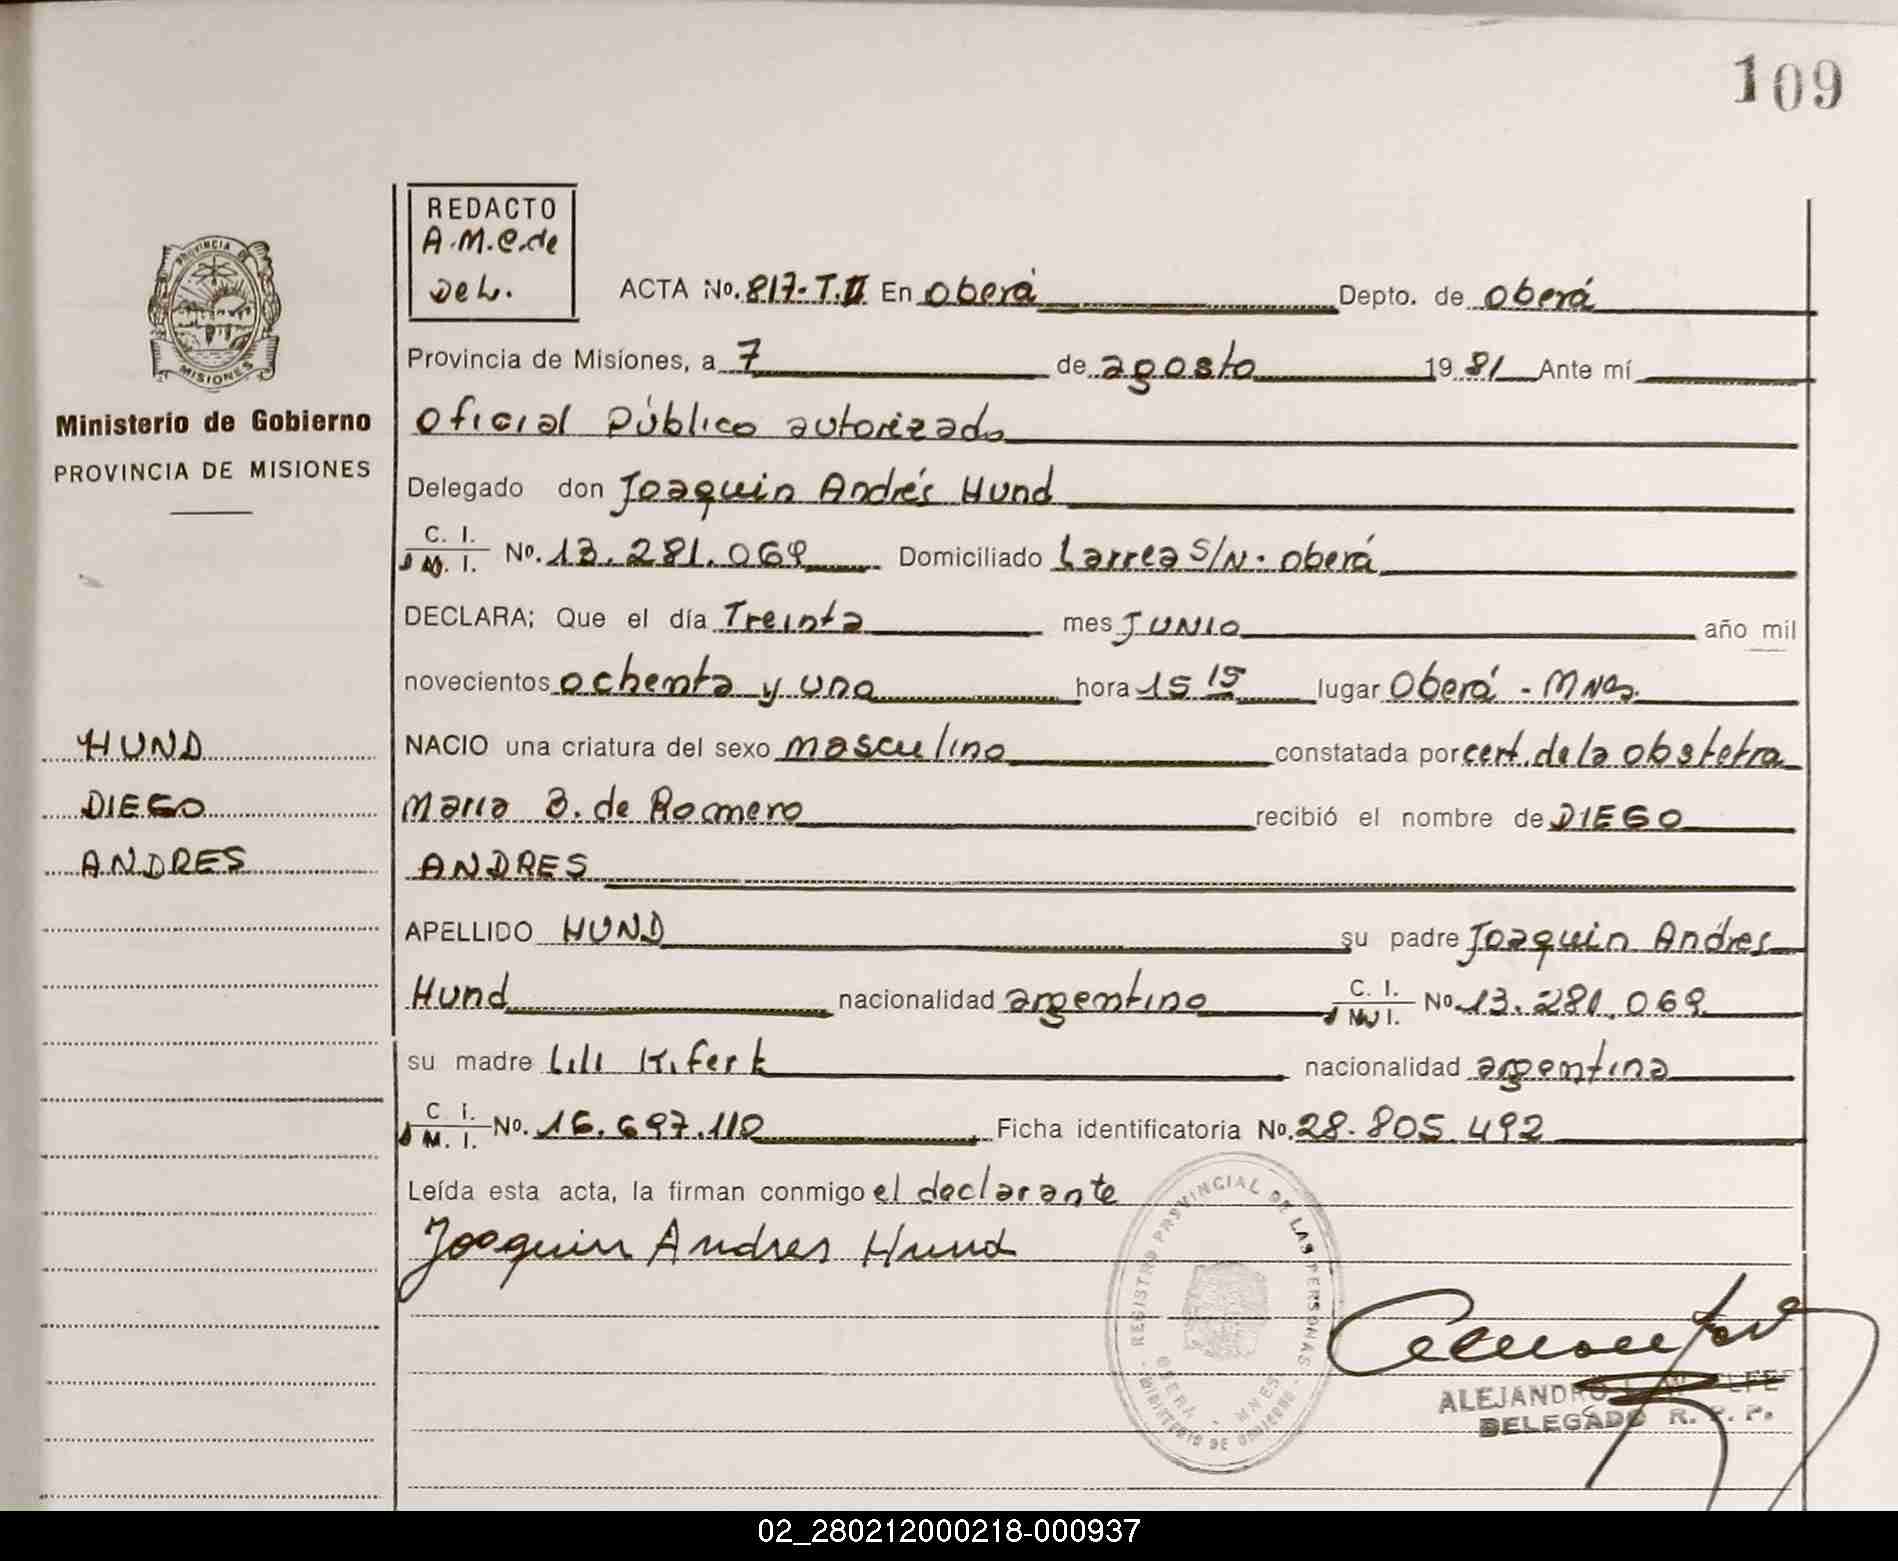 109
REDACTO
A.M.C.de
Del.
PROVINCIA DE
MISIONES
Ministerio de Gobierno
PROVINCIA DE MISIONES
HUND
DIEGO
ANDRES
ACTA No. 817-T.II En Oberá Depto. de Oberá
Provincia de Misiones, a 7 de agosto 19 81 Ante mí
Oficial Público autorizado
Delegado don Joaquin Andrés Hund
C. I.
M. I. No. 13.281.069 Domiciliado Larrea S/N. Oberá
DECLARA; Que el día Treinta mes JUNIO año mil
novecientos ochenta y uno hora 15 15 lugar Oberá - Mnes.
NACIO una criatura del sexo masculino constatada por cert. de la obstetra
Maria B. de Romero recibió el nombre de DIEGO
ANDRES
APELLIDO HUND su padre Joaquin Andres
Hund nacionalidad argentino C. I.
M. I. No. 13.281.069
su madre Lili Kiferk nacionalidad argentina
C. I.
M. I. No. 16.697.110 Ficha identificatoria No. 28.805.492
Leída esta acta, la firman conmigo el declarante
Joaquin Andres Hund
REGISTRO PROVINCIAL DE LAS PERSONAS
OBERA - MNES
MINISTERIO DE GOBIERNO
ALEJANDRO
DELEGADO R. P. P.
02_280212000218-000937